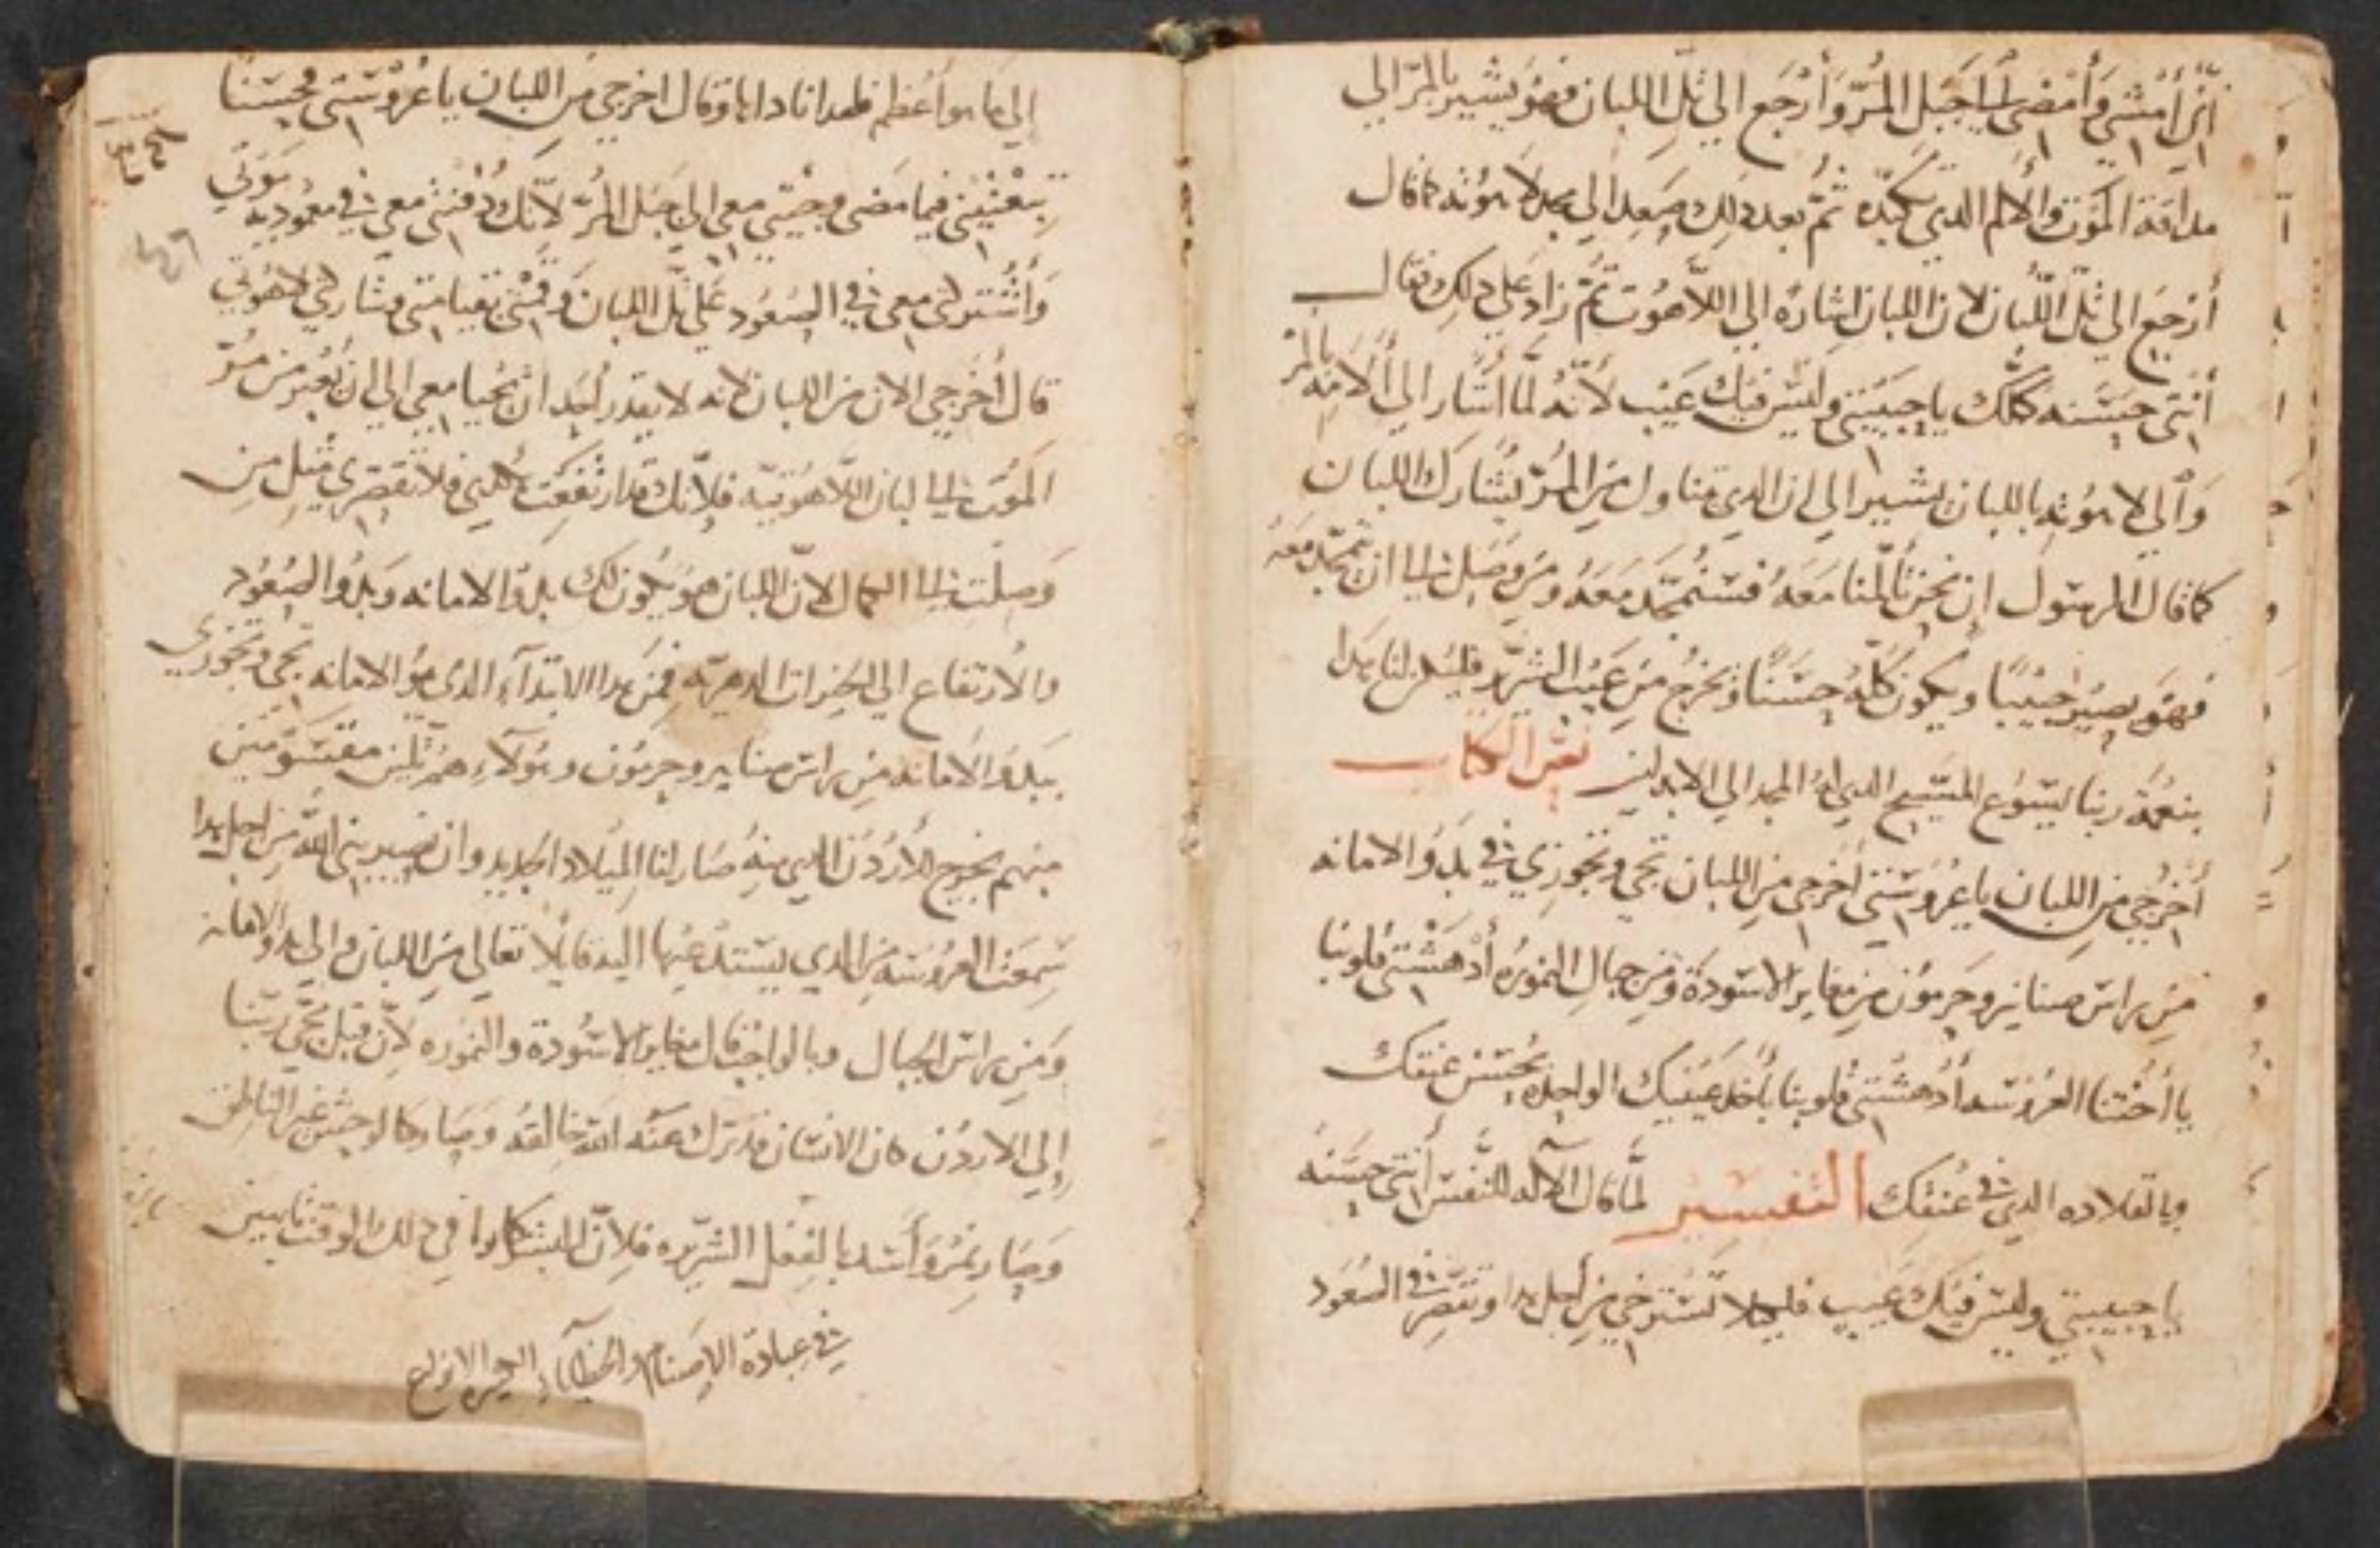 إني أمشي وأمضي إلى جبل المر وأرجع إلى تل اللبان فهو يشير بالمر إلى
مداقة الموت والألم الدي تكبده ثم بعد دلك صعد إلى مجد لاهوته كما قال
أرجع إلى تل اللبان لان اللبان اشاره إلى اللاهوت ثم زاد على دلك فقال
أنتي حسنه كلك يا حبيبتي وليس فيك عيب لأنه لما اشار إلى ألامه بالمر
وإلى لاهوته باللبان يشير إلى ان الدي يتناول من المر يشارك اللبان
كما قال الرسول إن نحن تألمنا معه فسنتمجد معه ومن وصل إلى ان يتمجد معه
فهو يصير حبيبا ويكون كله حسنا ويخرج من عيب الشرير فليكن لنا هدا
بنعمة ربنا يسوع المسيح الدي له المجد إلى الابد امين نص الكتاب
أخرجي من اللبان يا عروستي أخرجي من اللبان تجي وتجوزي في بدو الامانه
من راس صناير وحرمون من مغاير الاسودة ومن جبال النموره أدهشتي قلوبنا
يا أختنا العروسه أدهشتي قلوبنا بأحد عينيك الواحده بحسن عنقك
وبالقلاده التي في عنقك التفسير لما قال الآله للنفس أنتي حسنه
يا حبيبتي وليس فيك عيب فليلا تسترخي من أجل هدا وتقصر في الصعود
إلى ما هو أعظم فلهدا ناداها وقال اخرجي من اللبان يا عروستي فحسنا
تبعتيني فيما مضى وجيتي معي إلى جبل المر لأنك دفنتي معي في معمودية موتي
وأشتركتي معي في الصعود على تل اللبان وقمتي بقيامتي وشاركتي لاهوتي
قال أخرجي الان من اللبان لانه لا يقدر أحد ان يحيا معي إلى ان يعبر من مر
الموت إلى لبان اللاهوتيه فلأنك قد ارتفعت فلا تقصري مثل من
وصلت إلى الكمال لان اللبان هو يكون لك بدو الامانه وبدو الصعود
والارتفاع إلى الخيرات الدهريه فمن هدا الابتدآء الدي هو الامانه تجي وتجوزي
ببدو الامانه من راس صناير وحرمون وهولآء هم تلين مقسومين
منهم يخرج الأردن الدي منه صار لنا الميلاد الجديد وان نصير بني الله من اجل هدا
سمعت العروسه من الدي يستدعيها اليه قايلا تعالي من اللبان وإلى بدو الامانه
ومن راس الجبال وبالواجب قال مغاير الاسودة والنموره لأن قبل مجي ربنا
إلى الاردن كان الانسان قد ترك عنه الله خالقه وصار كالوحش غير الناطق
وصار نمر وأسد بالفعل الشريره فلان البشر كانوا في دلك الوقت تايهين
في عبادة الاصنام والخطايا